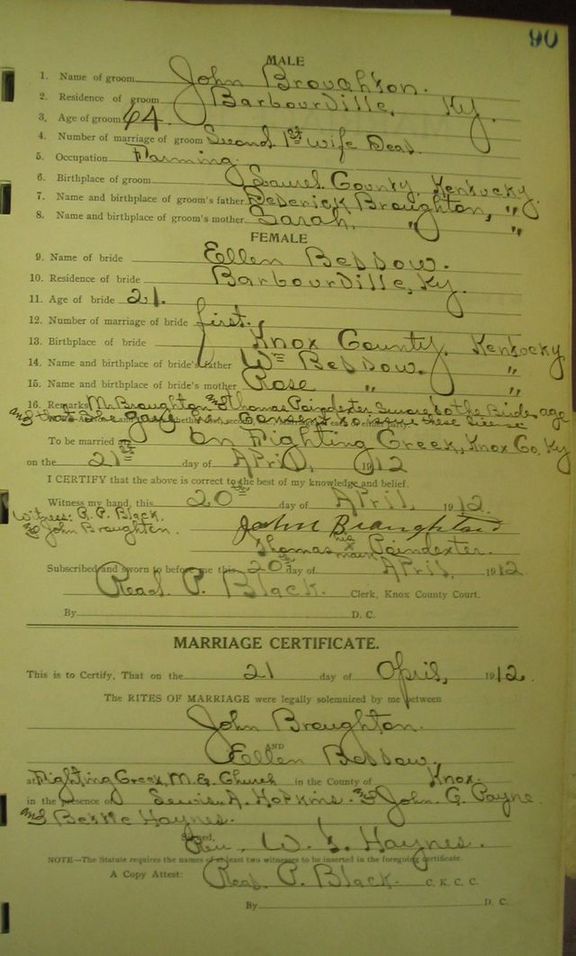 90
MALE
1. Name of groom John Broughton.
2. Residence of groom Barbourville, Ky.
3. Age of groom 64.
4. Number of marriage of groom Second 1st wife Dead.
5. Occupation Farming.
6. Birthplace of groom Laurel County, Kentucky.
7. Name and birthplace of groom's father Broughton, "
8. Name and birthplace of groom's mother Sarah, " "
FEMALE
9. Name of bride Ellen Bessow.
10. Residence of bride Barbourville, Ky.
11. Age of bride 21.
12. Number of marriage of bride first.
13. Birthplace of bride Knox County, Kentucky
14. Name and birthplace of bride's father Wm Bessow. "
15. Name and birthplace of bride's mother Rose " "
16. Remarks Mr Broughton & Thomas Poindexter Swore to the Brides age
To be married On Fighting Creek, Knox Co. Ky
on the 21st day of April, 1912
I CERTIFY that the above is correct to the best of my knowledge and belief.
Witness my hand, this 20th day of April 1912.
Witness: R. P. Black.
& John Broughton.
John Broughton
Thomas his mark Poindexter.
Subscribed and sworn to before me this 20th day of April, 1912
Read P. Black. Clerk, Knox County Court.
By D. C.
MARRIAGE CERTIFICATE.
This is to Certify, That on the 21 day of April, 1912.
The RITES OF MARRIAGE were legally solemnized by me between
John Broughton.
AND
Ellen Bessow,
at Fighting Creek M. E. Church in the County of Knox.
in the presence of Lewis A. Hopkins. & John G. Payne
and Bessie Haynes.
Signed, Rev. W. L. Haynes.
NOTE—The Statute requires the names of at least two witnesses to be inserted in the foregoing certificate.
A Copy Attest: Read P. Black. C. K. C. C.
By D. C.